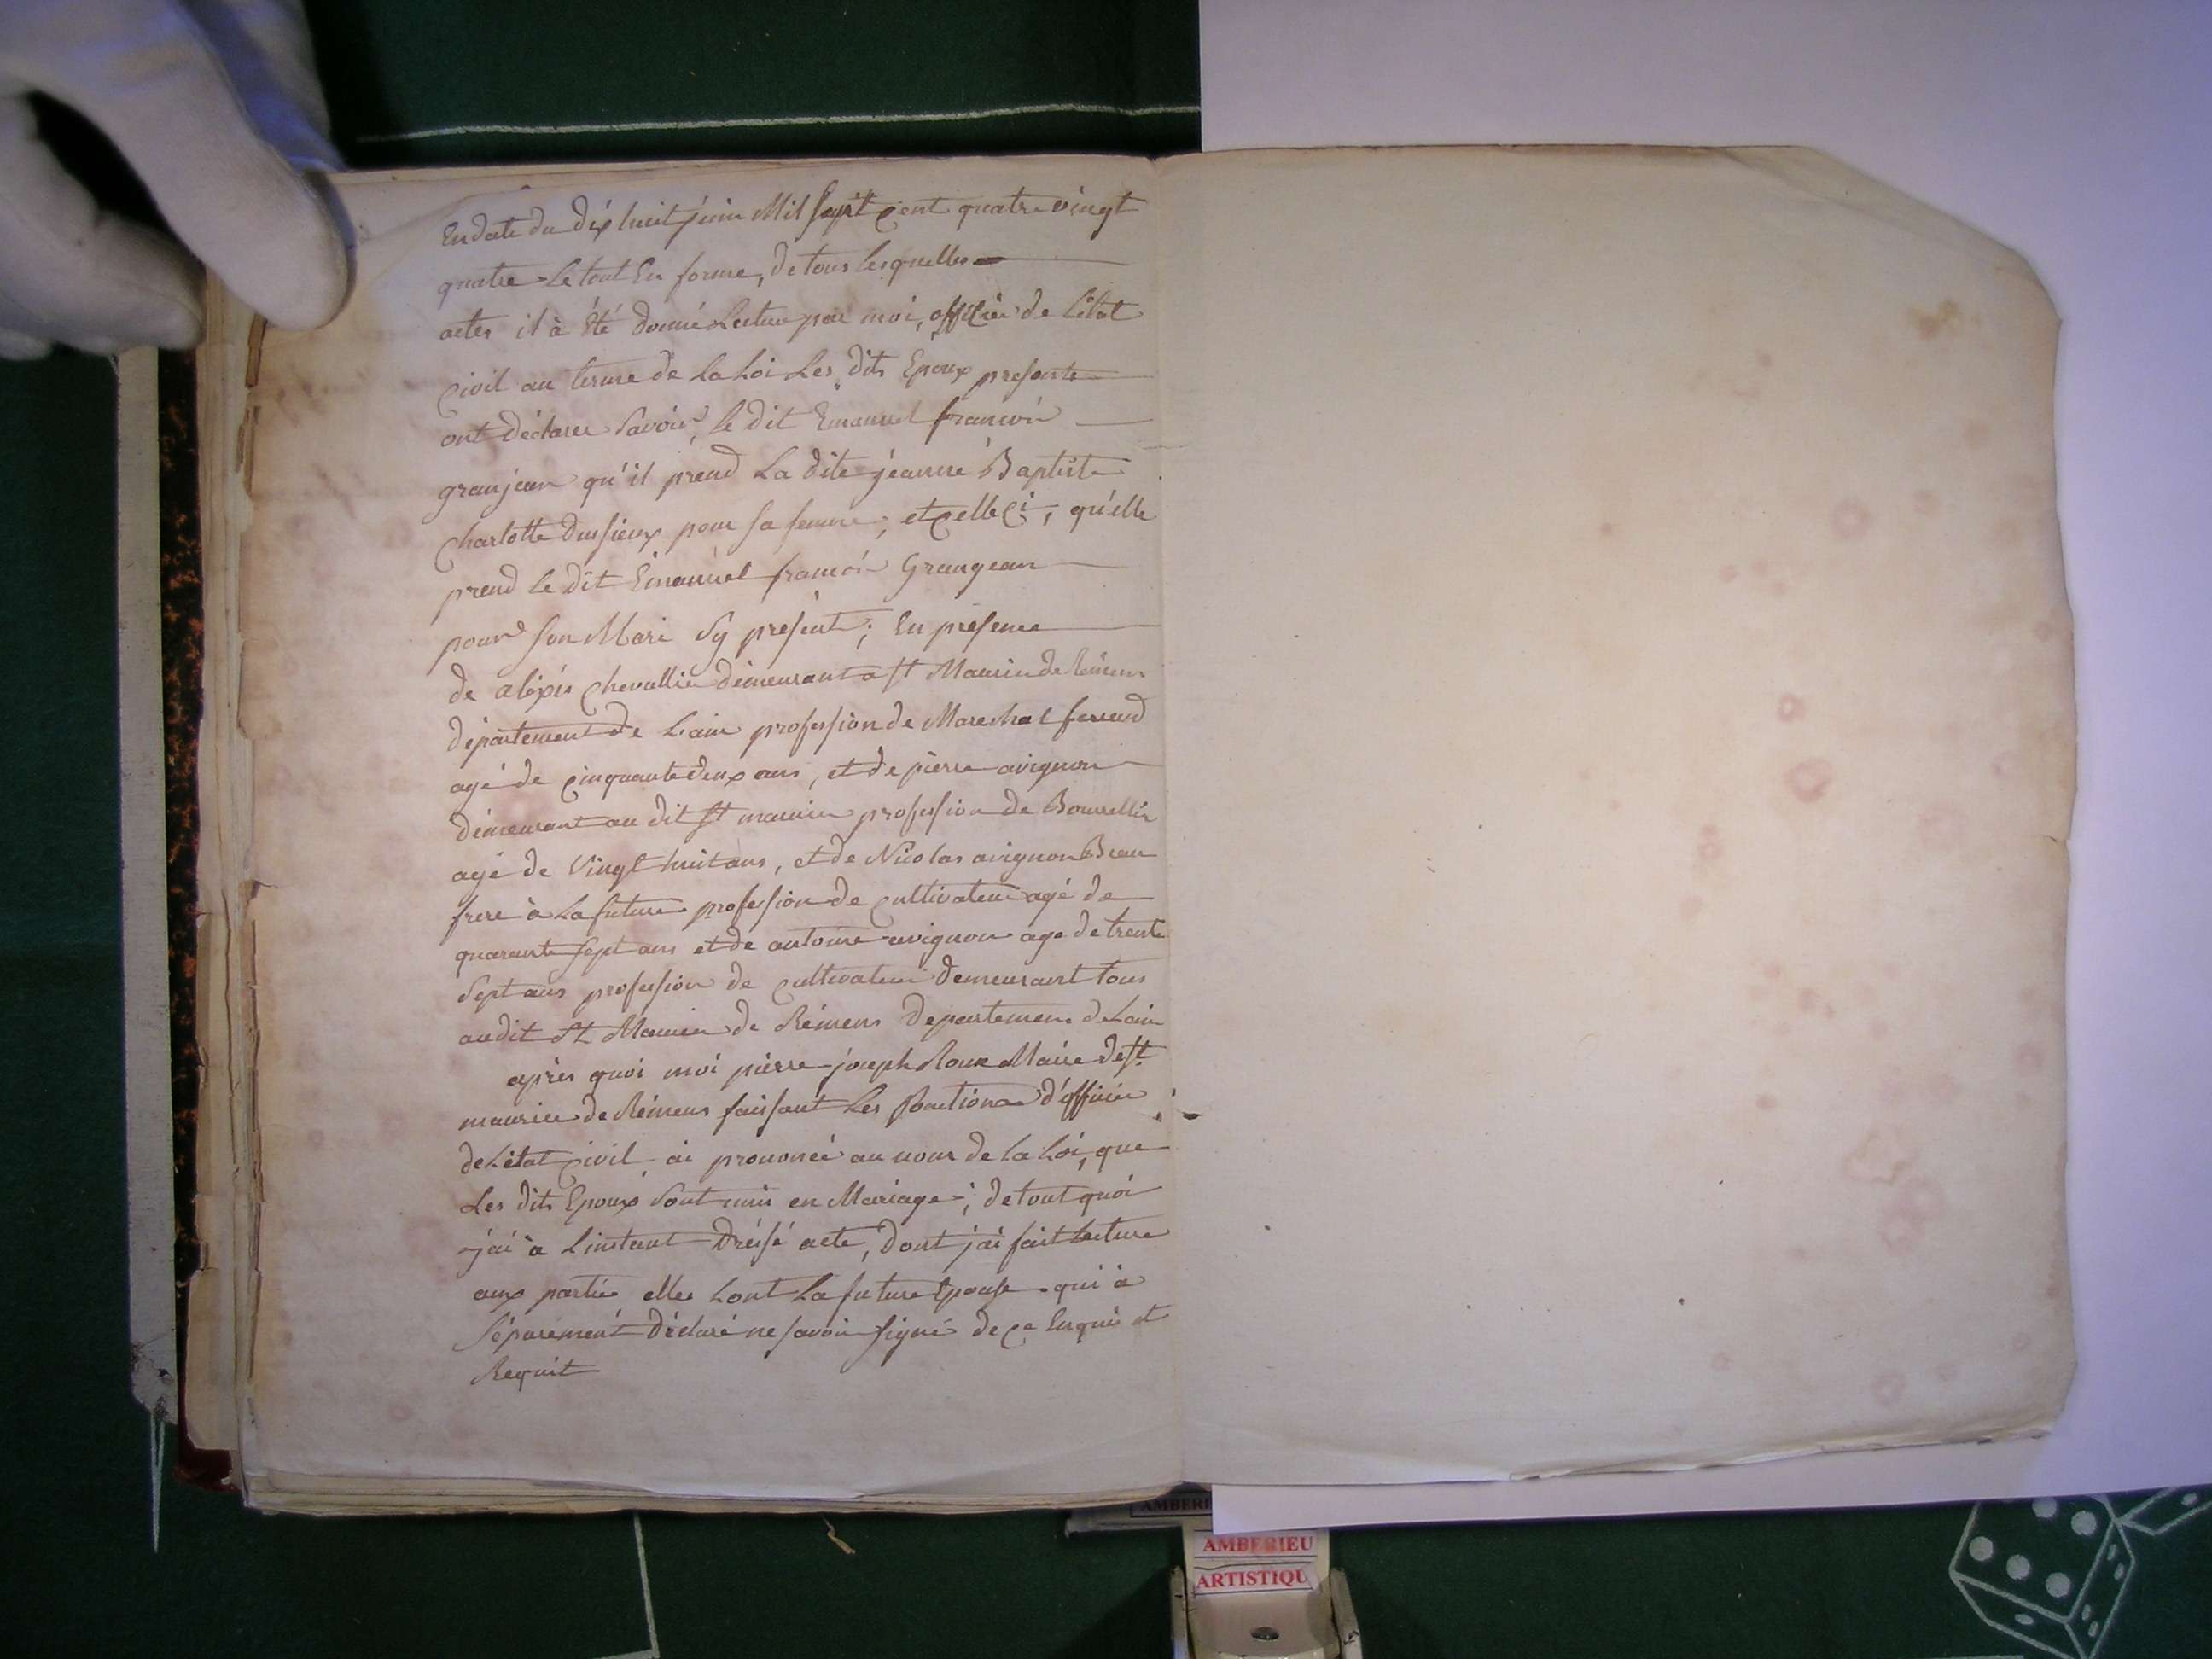 En date du dix huit juin Mil Sept Cent quatre vingt
quatre Le tout En forme, de tous lesquelles
actes il à été donné Lecture par moi, officier de L'état
Civil au terme de La Loi Les dits Epoux presents
ont déclarer Savoir, le dit Emanuel francois
granjean qu'il prend La dite jeanne Baptiste
Charlotte Dussieux pour sa femme, et Celle Ci, qu'elle
prend le dit Emanuel francois Grangean
pour Son Mari Sy présent; En présence
de alexis Chevallier demeurant a St Maurice de Rémens
département de L'ain profession de Marechal ferrend
agé de Cinquante deux ans, et de pierre avignon
demeurant au dit St maurice profession de Bourellier
agé de Vingt huit ans, et de Nicolas avignon Beau
frere à La future profession de Cultivateur agé de
quarante Sept ans et de antoine avignon age de trente
Sept ans profession de Cultivateur demeurant tous
audit St Maurice de Rémens Departement de Lain
après quoi moi pierre joseph Roux Maire de St
maurice de Rémens faisant Les fonctions d'officier
de L'état Civil ai prononcé au nom de la Loi, que
Les dits Epoux Sont unis en Mariage; de tout quoi
j'ai à L'instant Dréssé acte, dont j'ai fait Lecture
aux partie elles La future Epouse qui à
Séparément Déclaré ne savoir signé de Ce Enquis et
Requit
AMBERI
AMBERIEU
ARTISTIQU